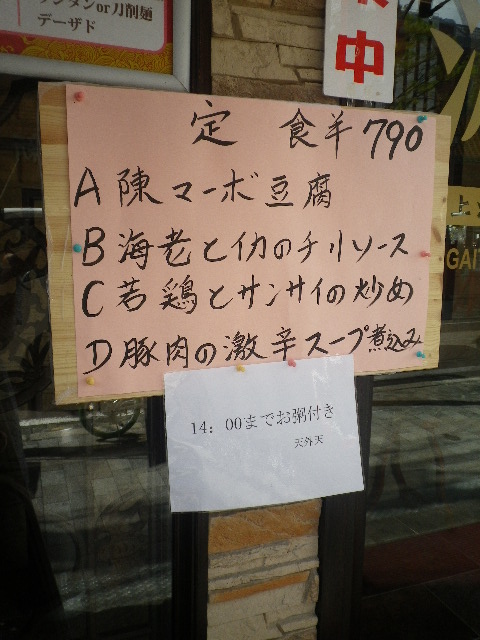 ワンタンor刀削麺
デーザド
中
定 食 ¥790
A 陳マーボ豆腐
B 海老とイカのチリソース
C 若鶏とサンサイの炒め
D 豚肉の激辛スープ煮込み
14：00までお粥付き
天外天
GAI